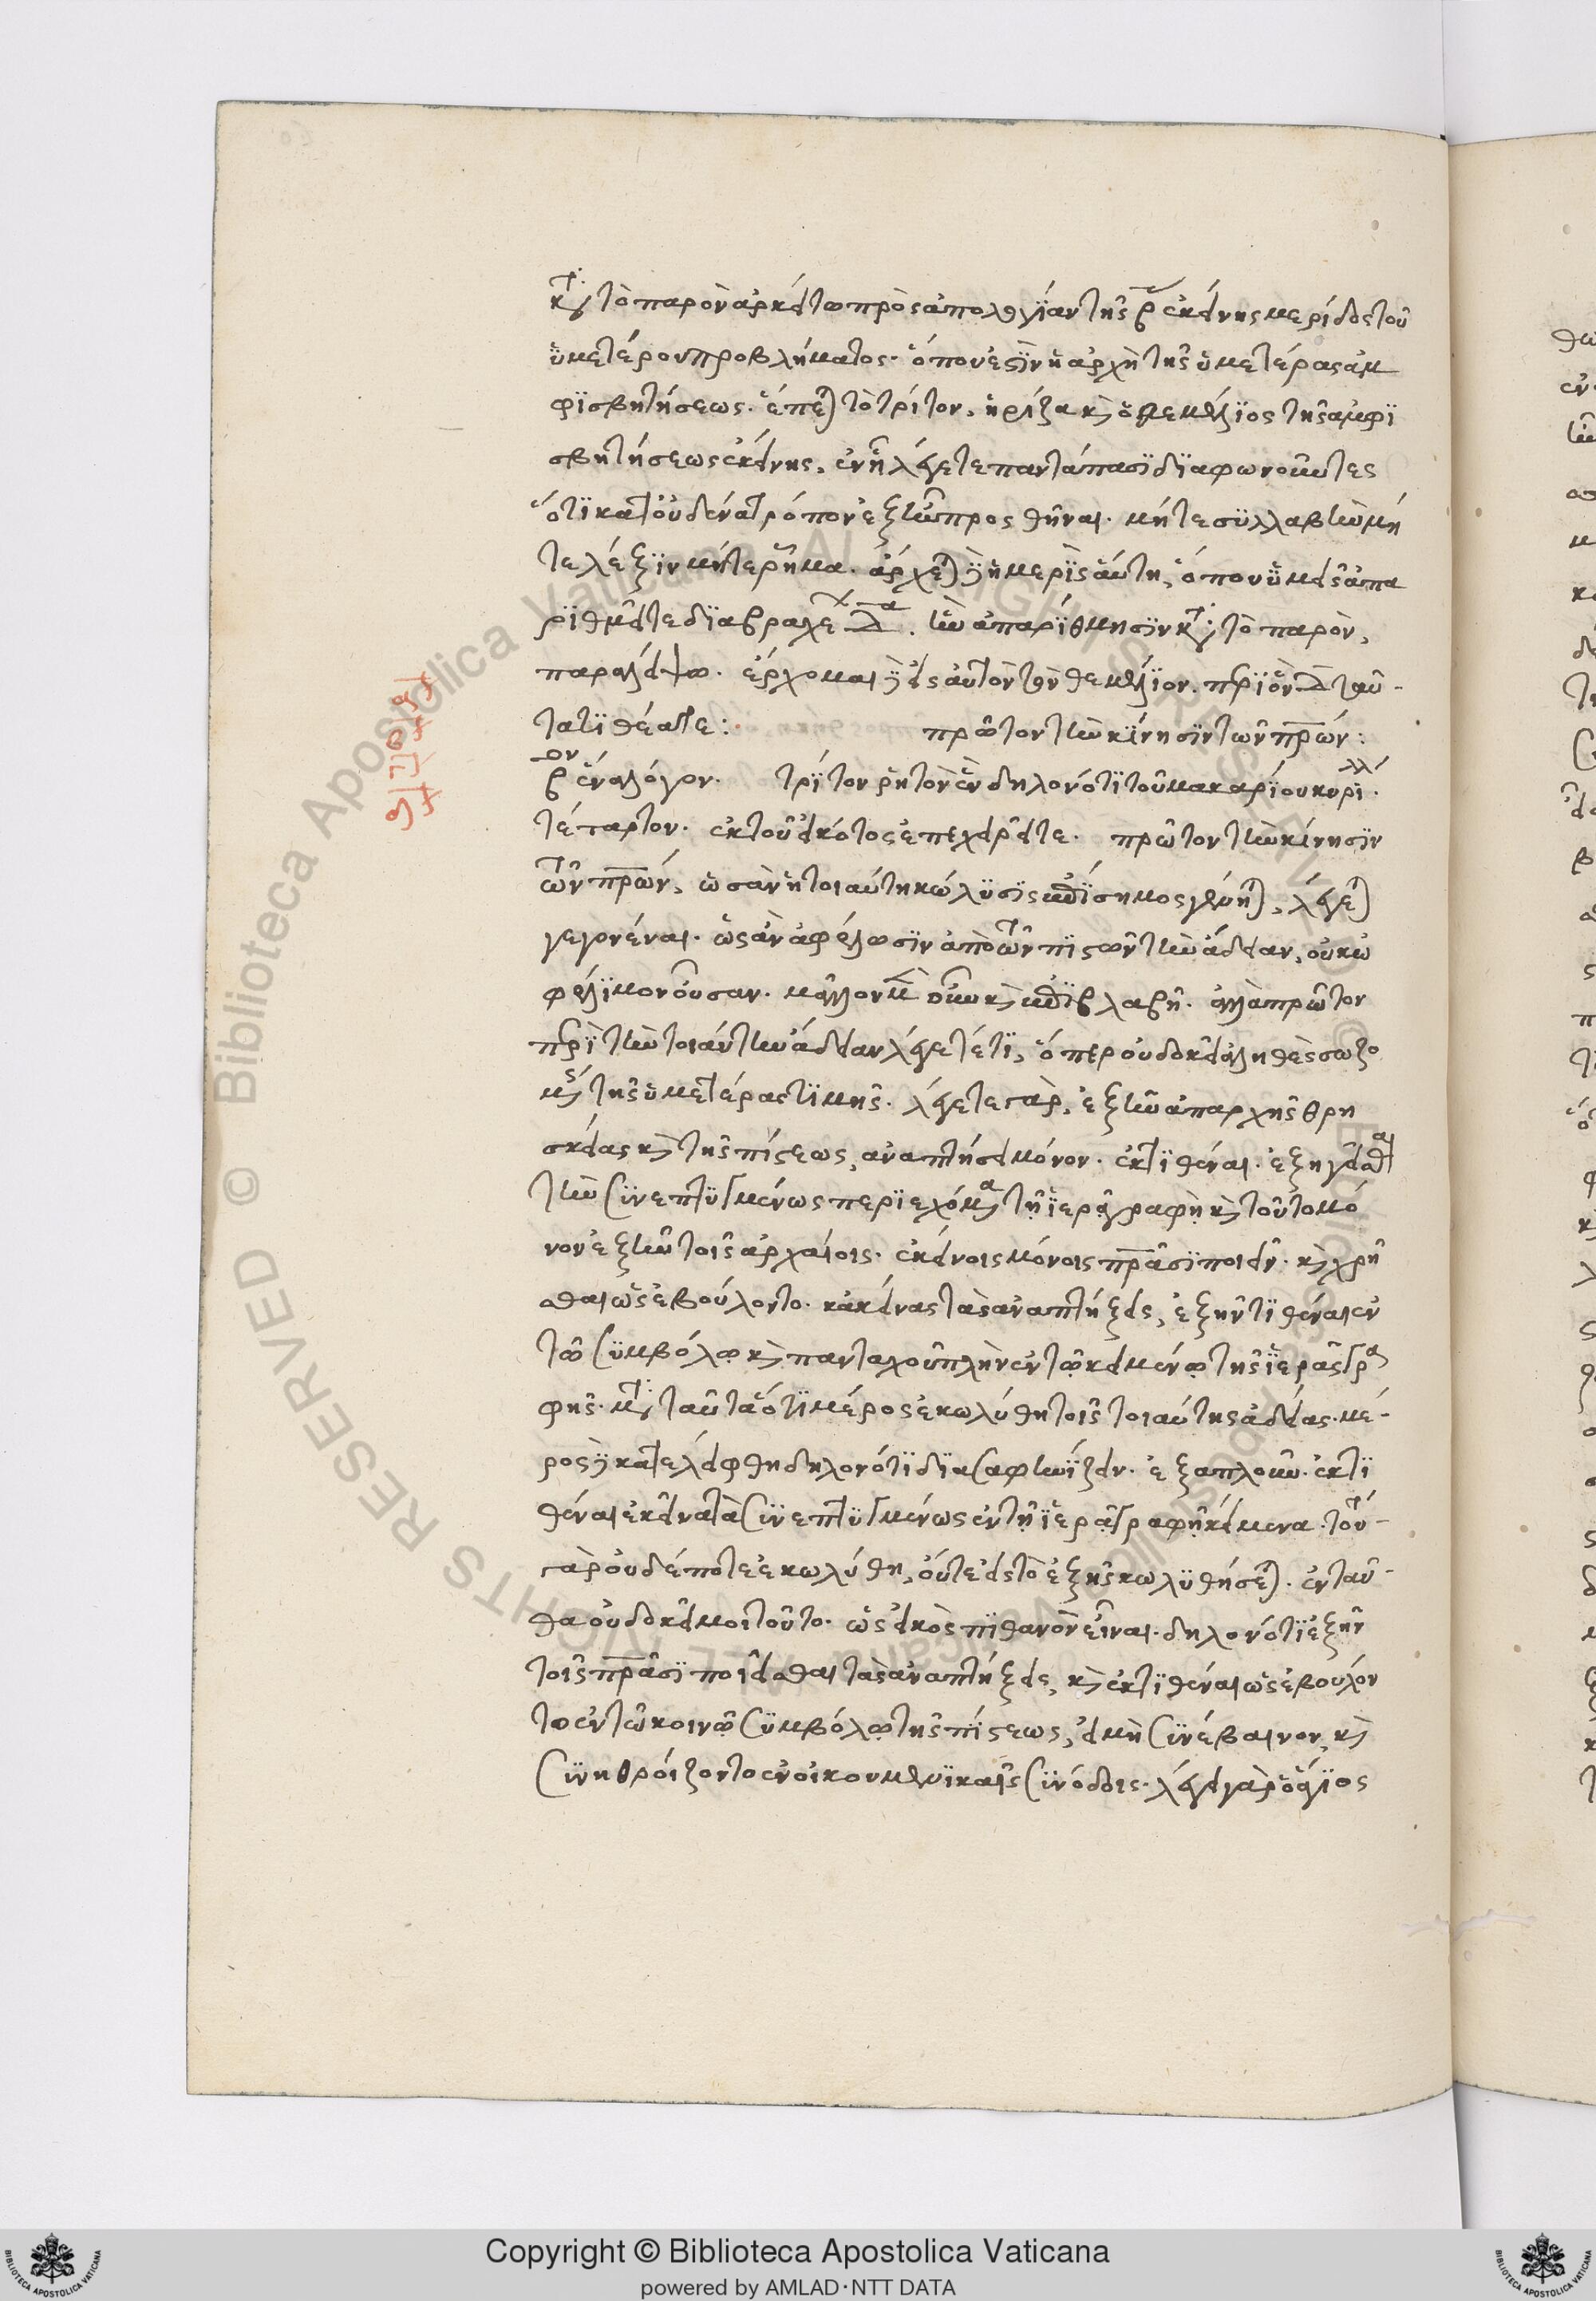 κατὰ τὸ παρὸν ἀρκείτω πρὸς ἀπολογίαν τῆς β ἐκείνης μερίδος τοῦ
ὑμετέρου προβλήματος· ὅπου ἐστὶν ἡ ἀρχὴ τῆς ὑμετέρας ἀμ
φισβητήσεως. ἕπεται τὸ τρίτον, ἡ ῥίζα καὶ ὁ θεμέλιος τῆς ἀμφι
σβητήσεως ἐκείνης, ἐν ᾗ λέγετε παντάπασι διαφωνοῦντες
ὅτι κατ' οὐδένα τρόπον ἐξῆν προσθῆναι. μήτε συλλαβὴν μή
τε λέξιν μήτε ῥῆμα. ἄρχεται δὲ ἡ μερὶς αὕτη, ὅπου ὑμεῖς ἀπα
ριθμεῖτε διὰ βραχέ Δ. τὴν ἀπαρίθμησιν κατὰ τὸ παρὸν,
παραλείψω. ἔρχομαι δὲ εἰς αὐτὸν τὸν θεμέλιον. περὶ ὃν Δ ταῦ-
τα τιθέατε: πρῶτον τὴν κίνησιν τῶν πρων:
β ἕνα λόγον. τρίτον ῥητὸν ἓν δηλονότι τοῦ μακαρίου κυρι.
τέταρτον. ἐκ τοῦ εἰκότος ἐπιχειρεῖτε. πρῶτον τὴν κίνησιν
τῶν πρων, ὡσὰν ἡ τοιαύτη κώλυσις ἐπίσημος γένηται, λέγεται
γεγονέναι. ὡς ἂν ἀφέλωσιν ἀπὸ τῶν πιστῶν τὴν ἄδειαν, οὐκ ὠ
φέλιμον οὖσαν. μᾶλλον μὲν οὖν καὶ ἐπιβλαβῆ. ἀλλὰ πρῶτον
περὶ τὴν τοιαύτην ἄδειαν λέγετέ τι, ὅπερ οὐ δοκεῖ ἀληθὲς σωζο
μένης τῆς ὑμετέρας τιμῆς. λέγετε γὰρ, ἐξῆν ἀπαρχῆς θρη
σκείας καὶ τῆς πίστεως, ἀναπτήσει μόνον. ἐκτιθέναι. ἐξηγεῖσθαι
τὴν συνεπτυγμένως περιεχόμενα τῇ ἱερᾷ γραφῇ καὶ τοῦτο μό
νον ἐξῆν τοῖς ἀρχαίοις. ἐκείνοις μόνοις πρᾶσι ποιεῖν. καὶ χρῆ
σθαι ὡς ἐβούλοντο. κἀκείνας τὰς ἀναπτήξεις, ἐξῆν τιθέναι ἐν
τῷ συμβόλῳ καὶ πανταχοῦ πλὴν ἐν τῷ κειμένῳ τῆς ἱερᾶς γρα
φῆς. μετὰ ταῦτα ὅτι μέρος ἐκωλύθη τοῖς τοιαύτης ἀδείας. μέ-
ρος δὲ κατελείφθη δηλονότι διασαφηνίζειν. ἐξαπλοῦν. ἐκτι
θέναι ἐκεῖνα τὰ συνεπτυγμένως ἐν τῇ ἱερᾷ γραφῇ κείμενα. τοῦ-
γὰρ οὐδέποτε ἐκωλύθη, οὔτε εἰς τὸ ἑξῆς κωλυθήσεται. ἐνταῦ-
θα οὐ δοκεῖ μοι τοῦτο. ὡς εἰκὸς πιθανὸν εἶναι. δηλονότι ἐξῆν
τοῖς πρᾶσι ποιεῖσθαι τὰς ἀναπτήξεις, καὶ ἐκτιθέναι ὡς ἐβούλον
το ἐν τῷ κοινῷ συμβόλῳ τῆς πίστεως, εἰ μὴ συνέβαινον, καὶ
συνηθροίζοντο ἐν οἰκουμενικαῖς συνόδοις. λέγει γὰρ ὁ ἅγιος